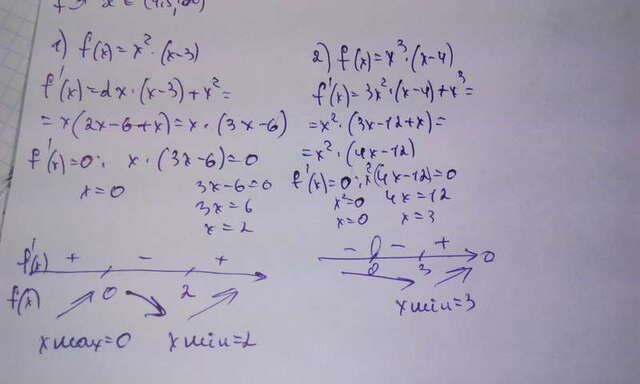 f ↗ x = (4,5; ∞)
1) f(x) = x² · (x-3)
f'(x) = 2x · (x-3) + x² =
= x(2x-6+x) = x · (3x-6)
f'(x)=0: x · (3x-6)=0
x=0 3x-6=0
3x=6
x=2
f'(x) + - +
f(x) 0 2
x max=0 x min=2
2) f(x) = x³ · (x-4)
f'(x) = 3x² · (x-4) + x³ =
= x² · (3x-12+x) =
= x² · (4x-12)
f'(x)=0: x²(4x-12)=0
x²=0 4x=12
x=0 x=3
- 0 - +
0 3 0
x min=3